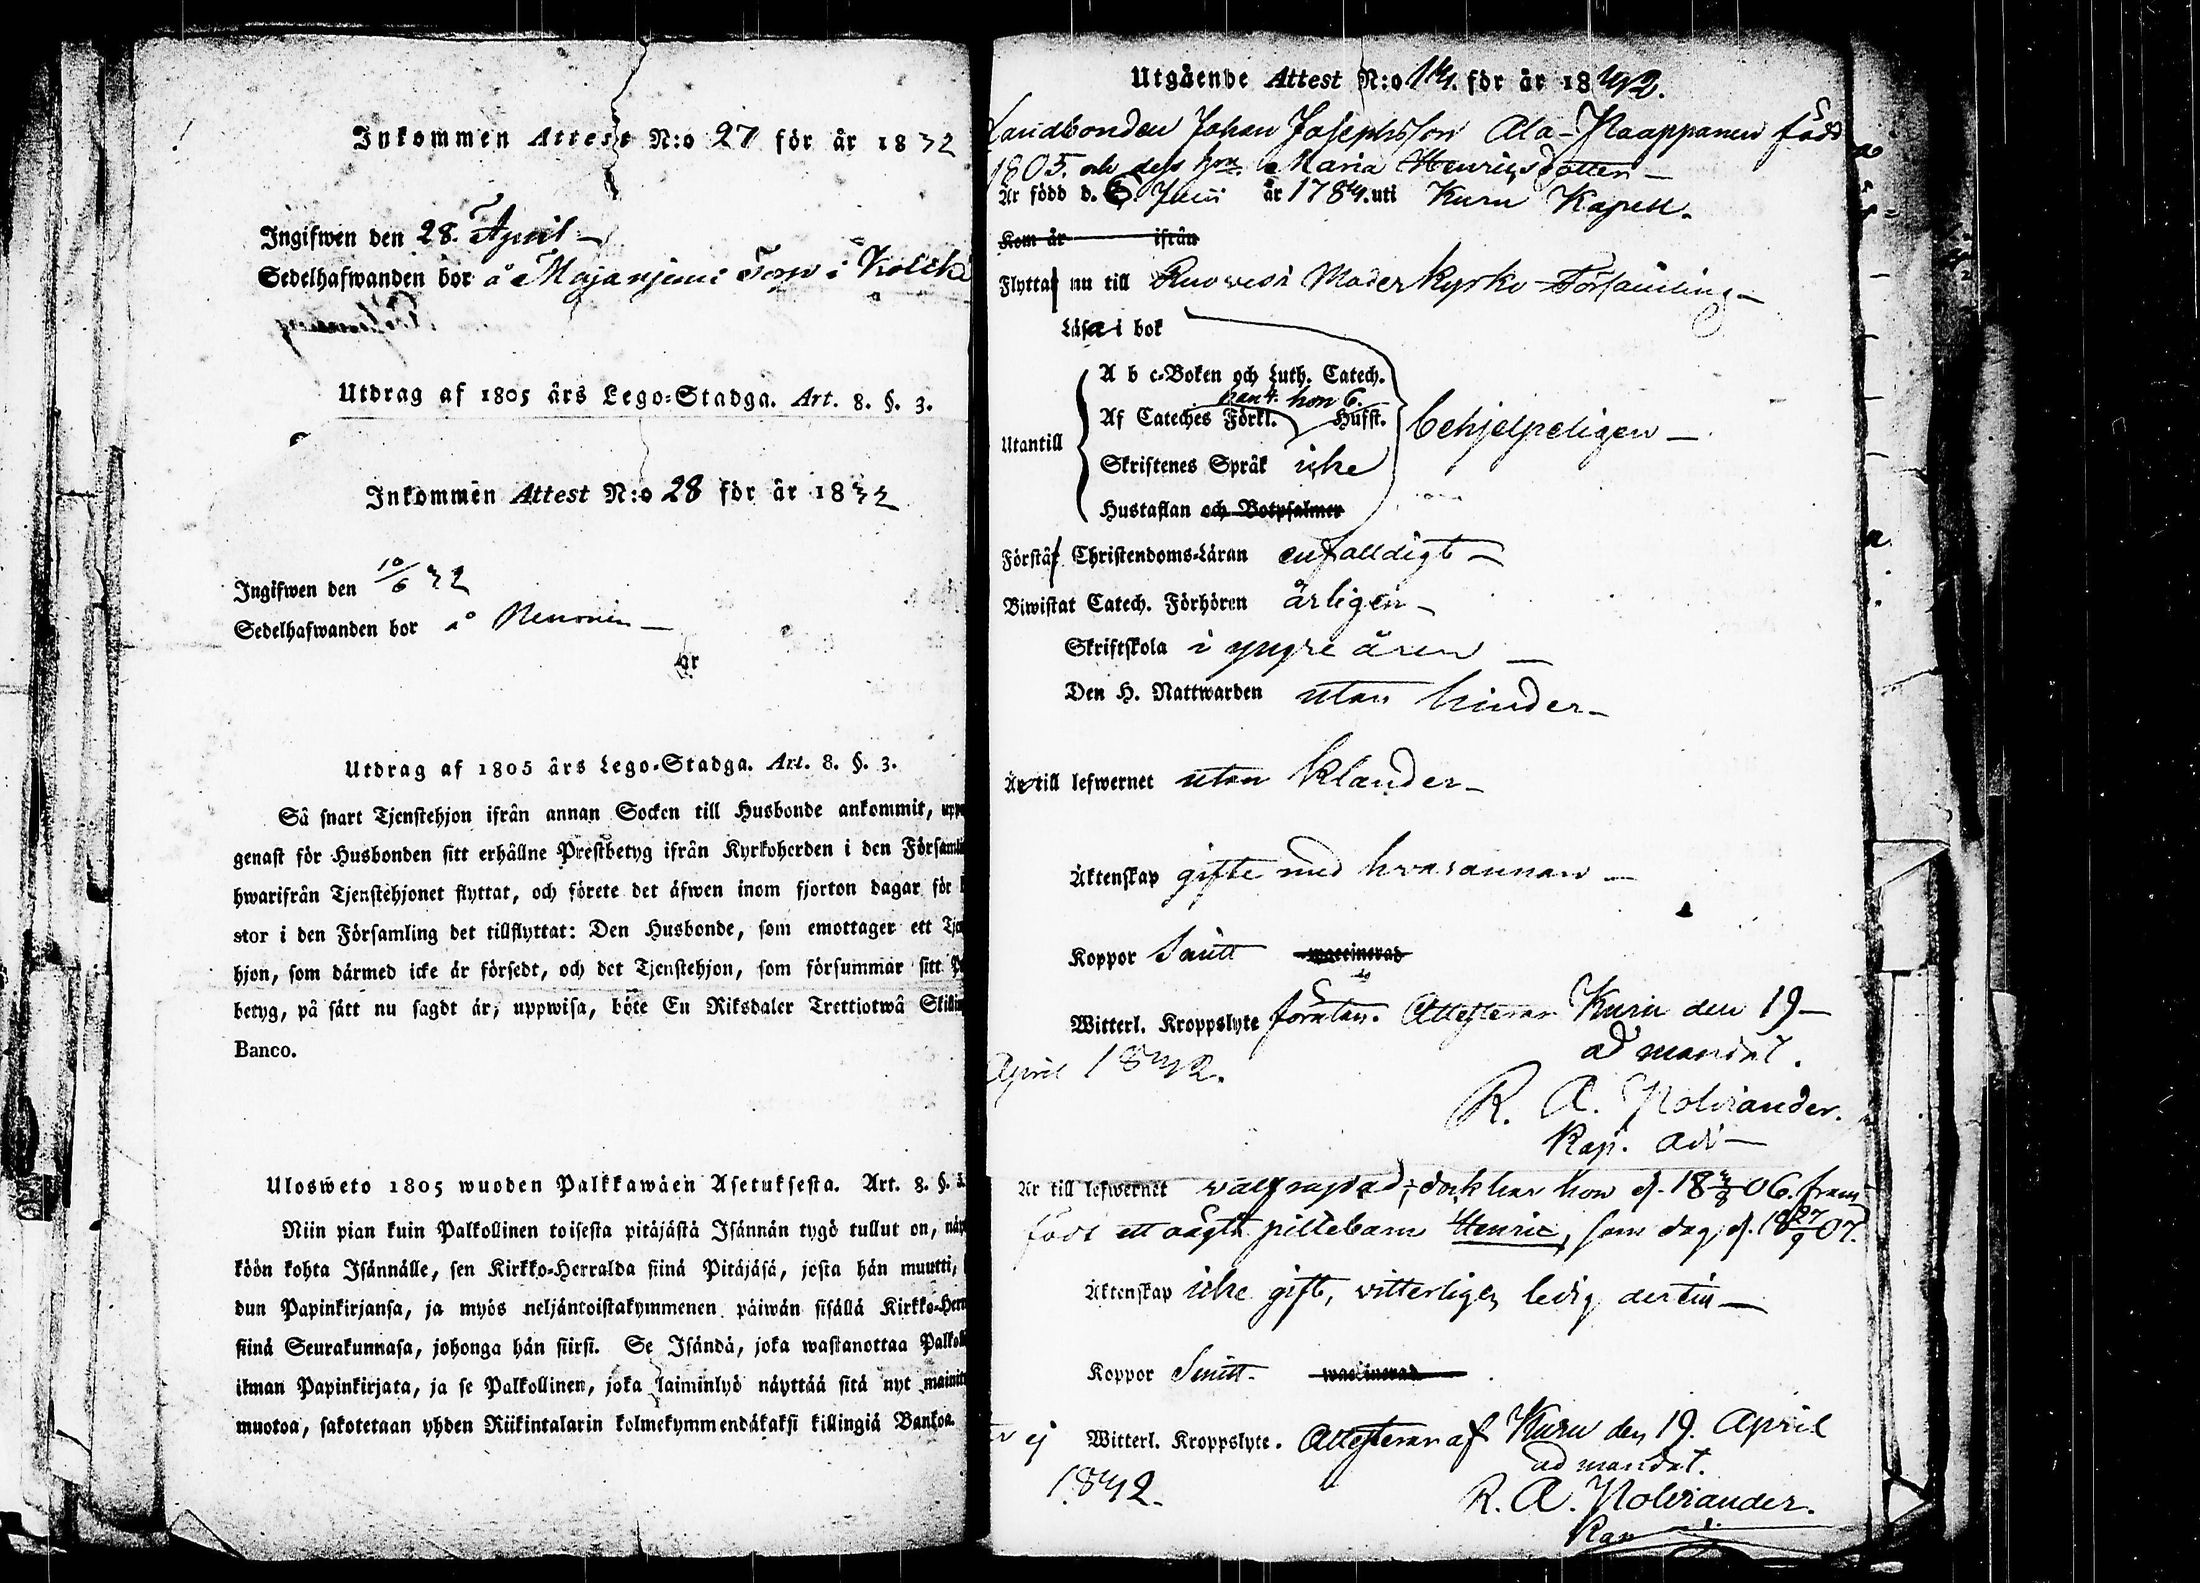 Inkommen Attest N:o 27 för år 1842
Ingifwen den 28. April
Sedelhafwanden bor å Majaniemi Torp i
Utdrag af 1805 års Lego-Stadga. Art. 8. §. 3.
Inkommen Attest N:o 28 för år 1842
Ingifwen den 10/6 42
Sedelhafwanden bor å
är
Utdrag af 1805 års Lego-Stadga. Art. 8. §. 3.
Så snart Tjenstehjon ifrån annan Socken till Husbonde ankommit, upp
genast för Husbonden sitt erhållne Prestbetyg ifrån Kyrkoherden i den Församli
hwarifrån Tjenstehjonet flyttat, och förete det äfwen inom fjorton dagar för
stor i den Församling det tillflyttat: Den Husbonde, som emottager ett Tje
hjon, som därmed icke är försedt, och det Tjenstehjon, som försummar sitt P
betyg, på sätt nu sagdt är, uppwisa, böte En Riksdaler Trettiotwå Skillin
Banco.
Ulosweto 1805 wuoden Palkkawäen Asetuksesta. Art. 8. §. 3.
Niin pian kuin Palkollinen toisesta pitäjästä Isännän tygö tullut on, näy
köön kohta Isännälle, sen Kirkko-Herralda siinä Pitäjäsä, josta hän muutti,
dun Papinkirjansa, ja myös neljäntoistakymmenen päiwän sisällä Kirkko-Herr
siinä Seurakunnasa, johonga hän siirsi. Se Isändä, joka wastanottaa Palkolli
ilman Papinkirjata, ja se Palkollinen, joka laiminlyö näyttää sitä nyt mainit
muotoa, sakotetaan yhden Riikintalarin kolmekymmendäkaksi killingiä Bankoa.
Utgående Attest N:o 14. för år 1842.
Landbonden Johan Josephsson Ala-Kaappanen född
1805. och dess hu. Maria Henricsdotter
Är född d. 6 Juni år 1784. uti Kuru Kapell.
Kom år ifrån
Flytta nu till Ruovesi Moderkyrko Församling
Läsa i bok
A b c-Boken och Luth. Catech.
han 4. hon 6.
Af Cateches Förkl. Hufst.
behjelpeligen
Utantill
Skriftenes Språk icke
Hustaflan och Botpsalmer
Förstå Christendoms-Läran enfalldigt
Biwistat Catech. Förhören årligen
Skriftskola i yngre åren
Den H. Nattwarden utan hinder
Är till lefwernet utan klander
Äktenskap gifte med hvarannan
Koppor haft waccinerad
Witterl. Kroppslyte förutan. Attesterar Kuru den 19
April 1842.
ad mandat.
R. A. Molviander.
Kap. adj
Är till lefwernet välfrejdad; dock har hon d. 18 3/8 06. fram
födt ett oägta pilltebarn Henric, som dog d. 18 27/9 07.
Äktenskap icke gift, vitterligen ledig dertill
Koppor haft waccinerad
ej Witterl. Kroppslyte. Attesterar af Kuru den 19. April
1842.
ad mandat.
R. A. Molviander.
Kap